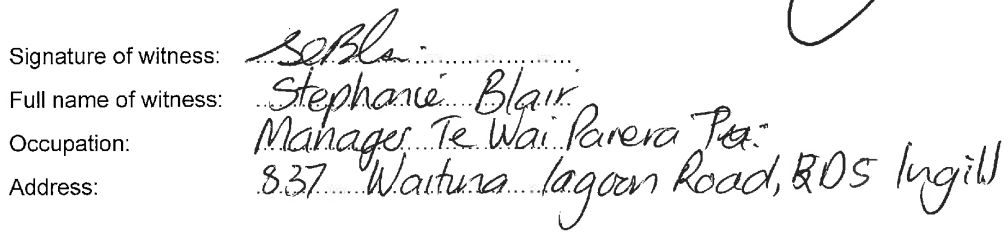 Signature of witness: SEBla
Full name of witness: Stephanie Blair
Occupation: Manager Te Wai Parera
Address: 837 Waituna lagoon Road, RD5 Ingill